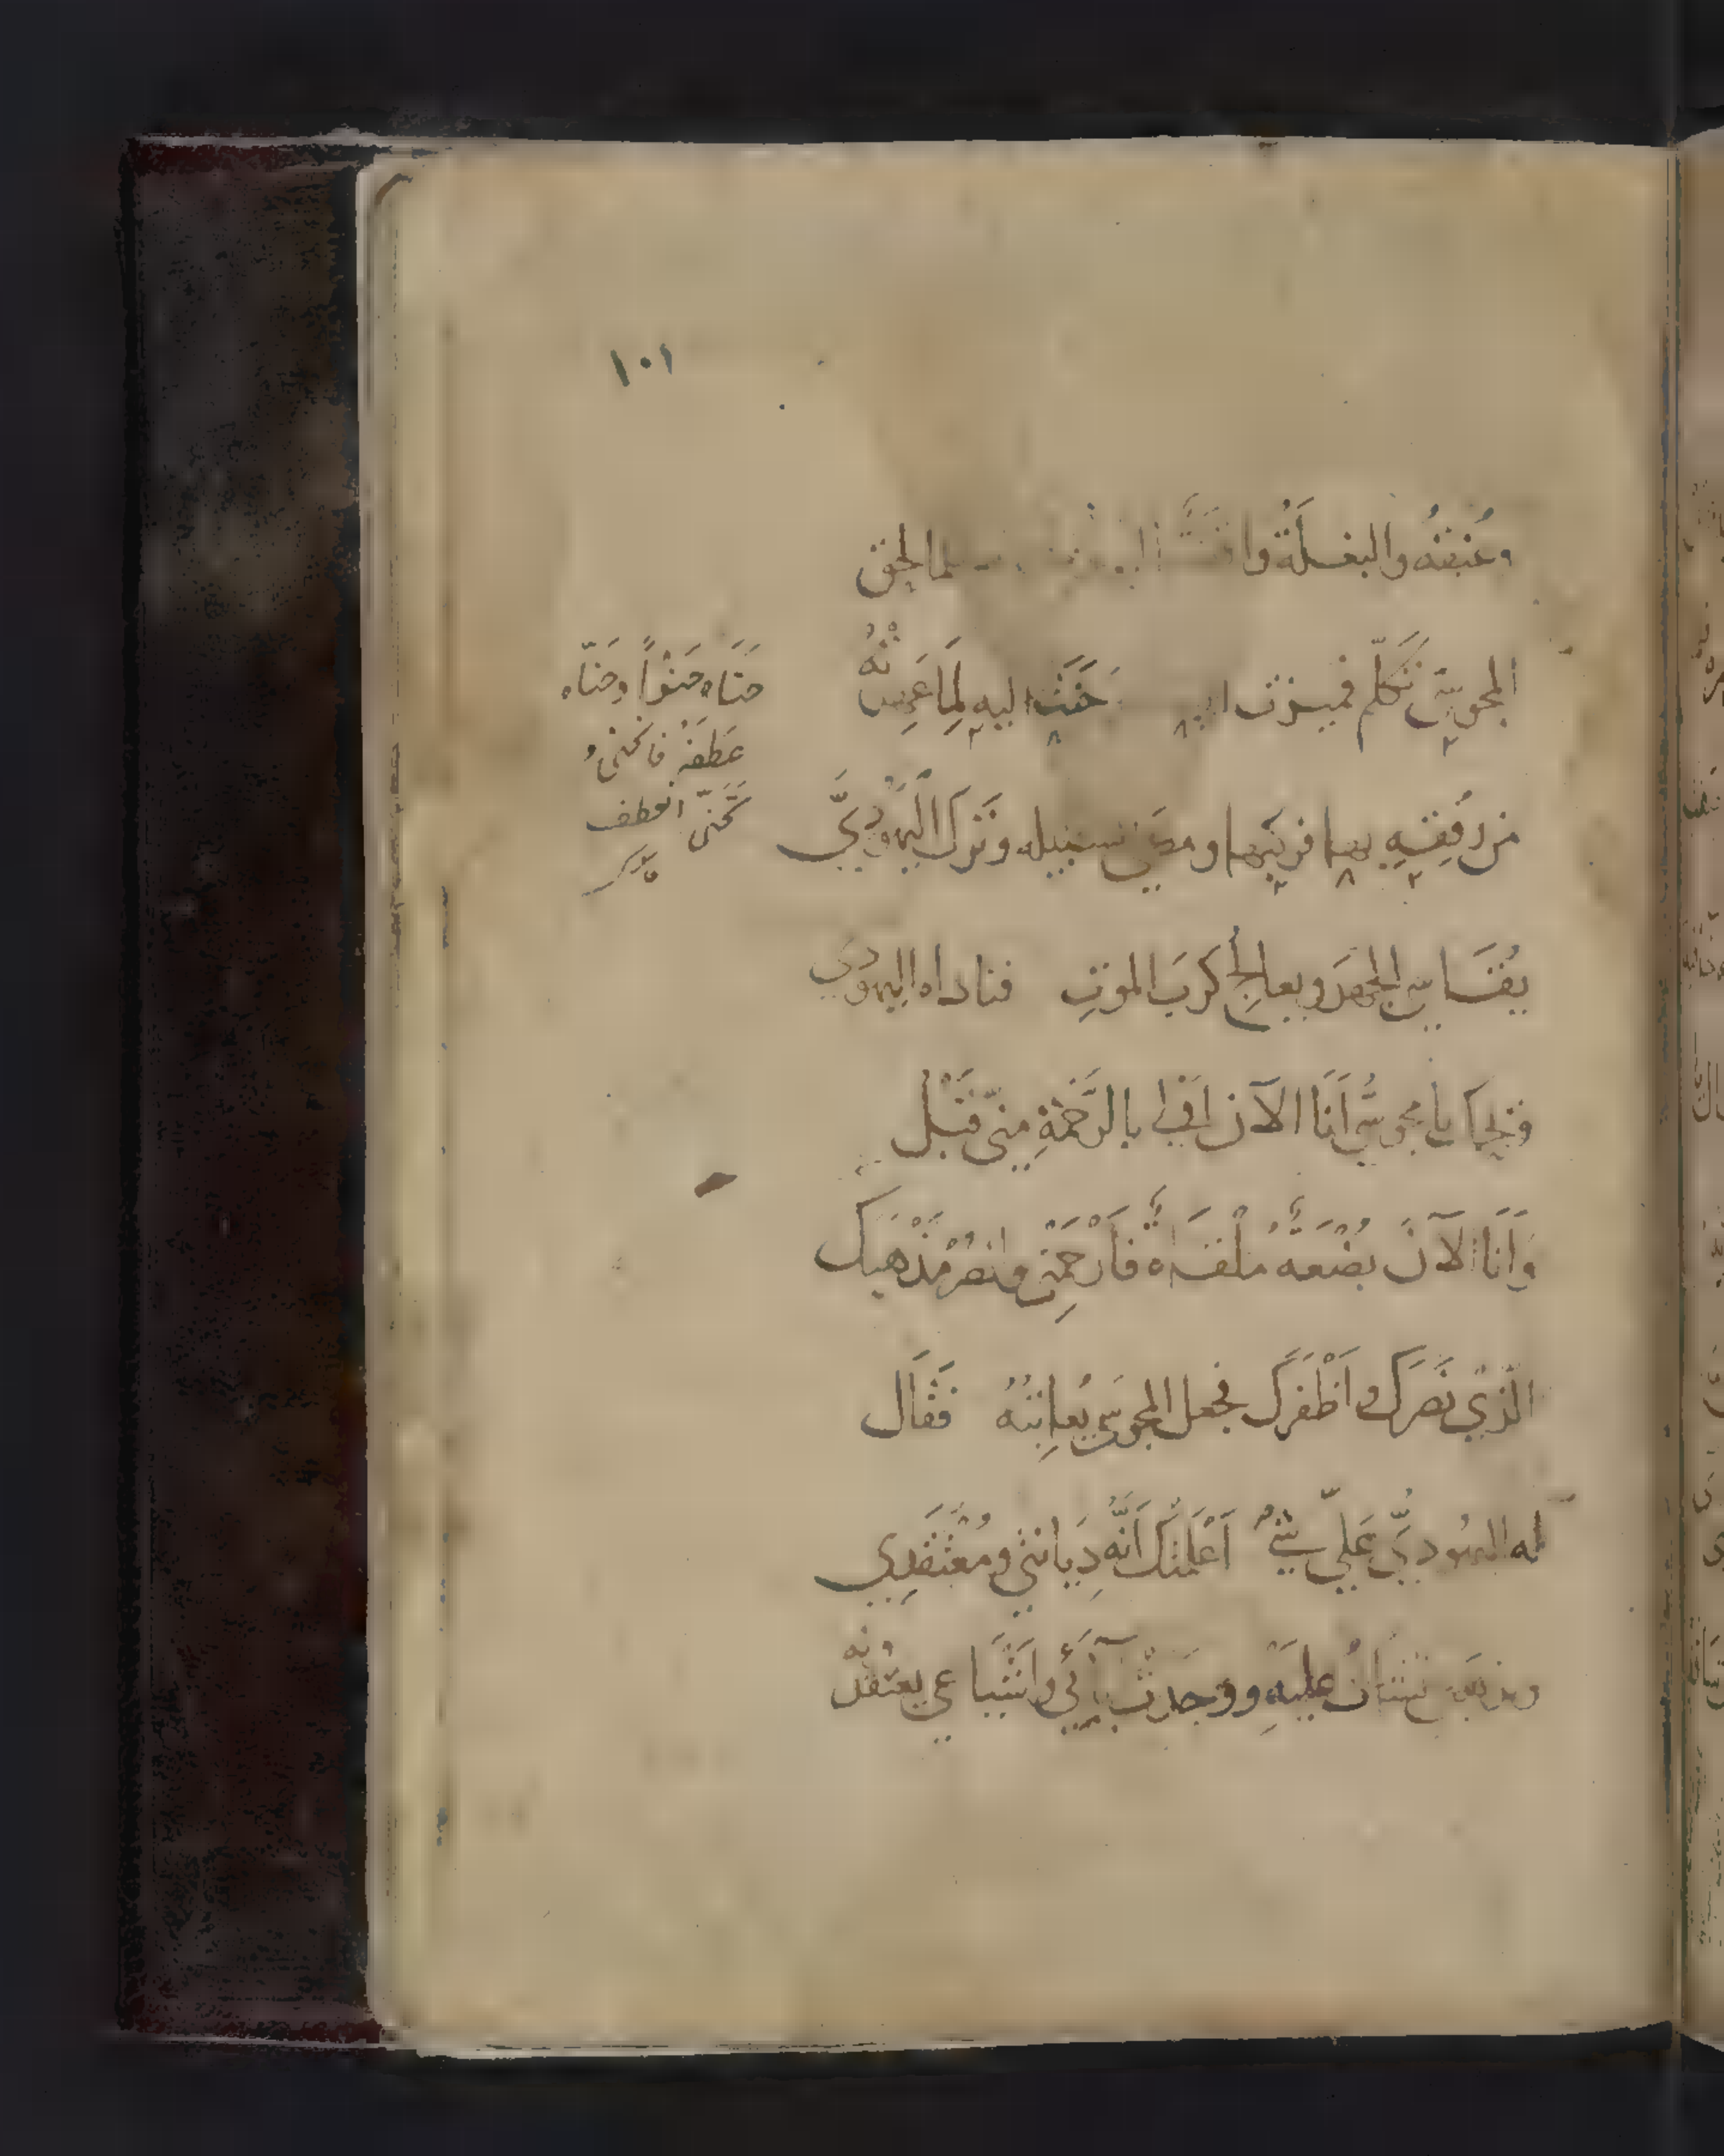 ١٠١
وعُنقهُ والبغلةُ وا لما لحق
المجوسيّ تكلّم فميزت حَنَت اليه لِمَا عَرِفَتْهُ
من رفقتِهِ بها فركبَها ومضى لسبيله وتَرَكَ اليهُوديَّ
يُقَاسي الجهدَ ويعالجُ كربَ الموتِ فناداه اليهودي
ويحك يا مجوسيُّ أَنَا الآن أولى بالرَّحْمَةِ منّي قَبْل
وَأَنَا الآنَ بضْعَةٌ مُلْقَاةٌ فَأرْحَمْنِي وانصُرْ مَذْهَبَك
الّذي نَصَرَك وأَظْفَرَك فجعل المجوسي يُعاتِبُهُ فَقَال
له اليهُوديُّ عَليّ شيءٌ أَعْلَمْتُكَ أَنَّهُ دِيَانتي ومُعْتَقَدِي
نشأتُ عليهِ ووجدتُ آبَائي وأَشْيَاعي يعتقدُونه
حَنَاه حَنْواً وحَنّاه
عَطَفَهُ فانحنى و
تَحَنّى انعطف